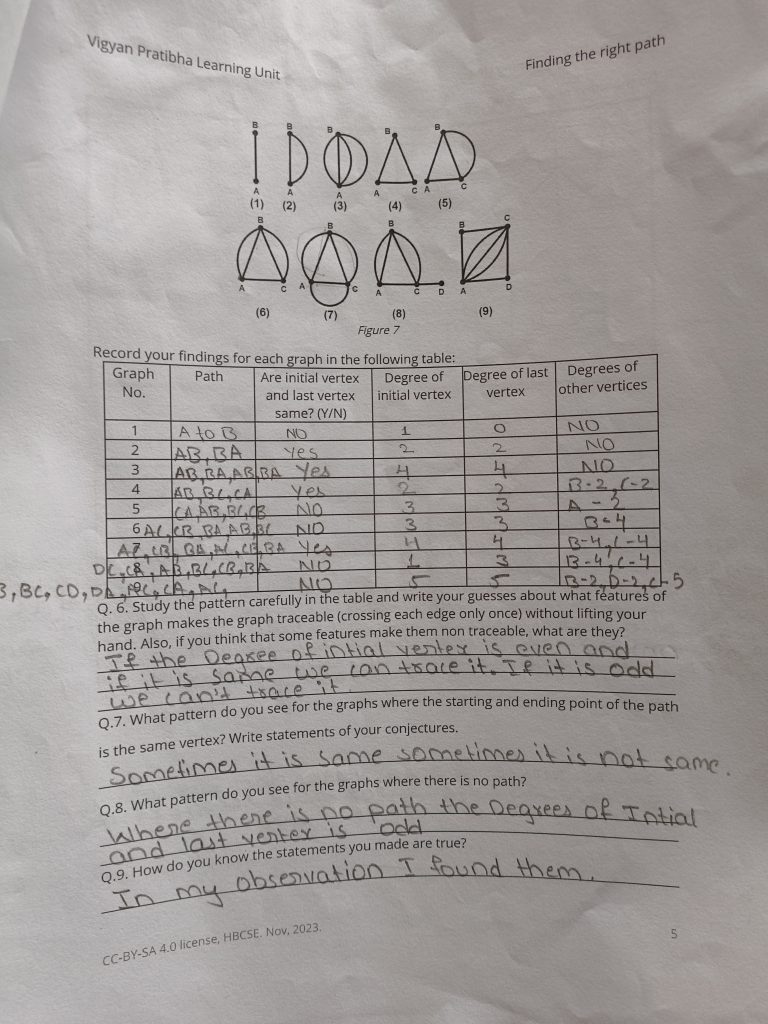 Vigyan Pratibha Learning Unit
Finding the right path
B B B B B
A A A A C A C
(1) (2) (3) (4) (5)
B B B B C
A C A C A C D A D
(6) (7) (8) (9)
Figure 7
Record your findings for each graph in the following table:
Graph No. Path Are initial vertex and last vertex same? (Y/N) Degree of initial vertex Degree of last vertex Degrees of other vertices
1 A to B NO 1 0 NO
2 AB, BA Yes 2 2 NO
3 AB, BA, AB, BA Yes 4 4 NO
4 AB, BC, CA Yes 2 2 B-2, C-2
5 CA, AB, BC, CB NO 3 3 A - 2
6 AC, CB, BA AB, BC NO 3 3 B-4
7, CB, BA, AC, CB, BA Yes 4 4 B-4, C-4
DC, CB, AB, BC, CB, BA NO 1 3 B-4, C-4
B, BC, CD, DA, AC, CA, AC, NO 5 5 B-2, D-2, C-5
Q. 6. Study the pattern carefully in the table and write your guesses about what features of
the graph makes the graph traceable (crossing each edge only once) without lifting your
hand. Also, if you think that some features make them non traceable, what are they?
If the Degree of intial vertex is even and
if it is same we can trace it. If it is odd
we can't trace it
Q.7. What pattern do you see for the graphs where the starting and ending point of the path
is the same vertex? Write statements of your conjectures.
Sometimes it is same sometimes it is not same.
Q.8. What pattern do you see for the graphs where there is no path?
Where there is no path the Degrees of Intial
and last vertex is odd
Q.9. How do you know the statements you made are true?
In my observation I found them.
CC-BY-SA 4.0 license, HBCSE. Nov, 2023.
5